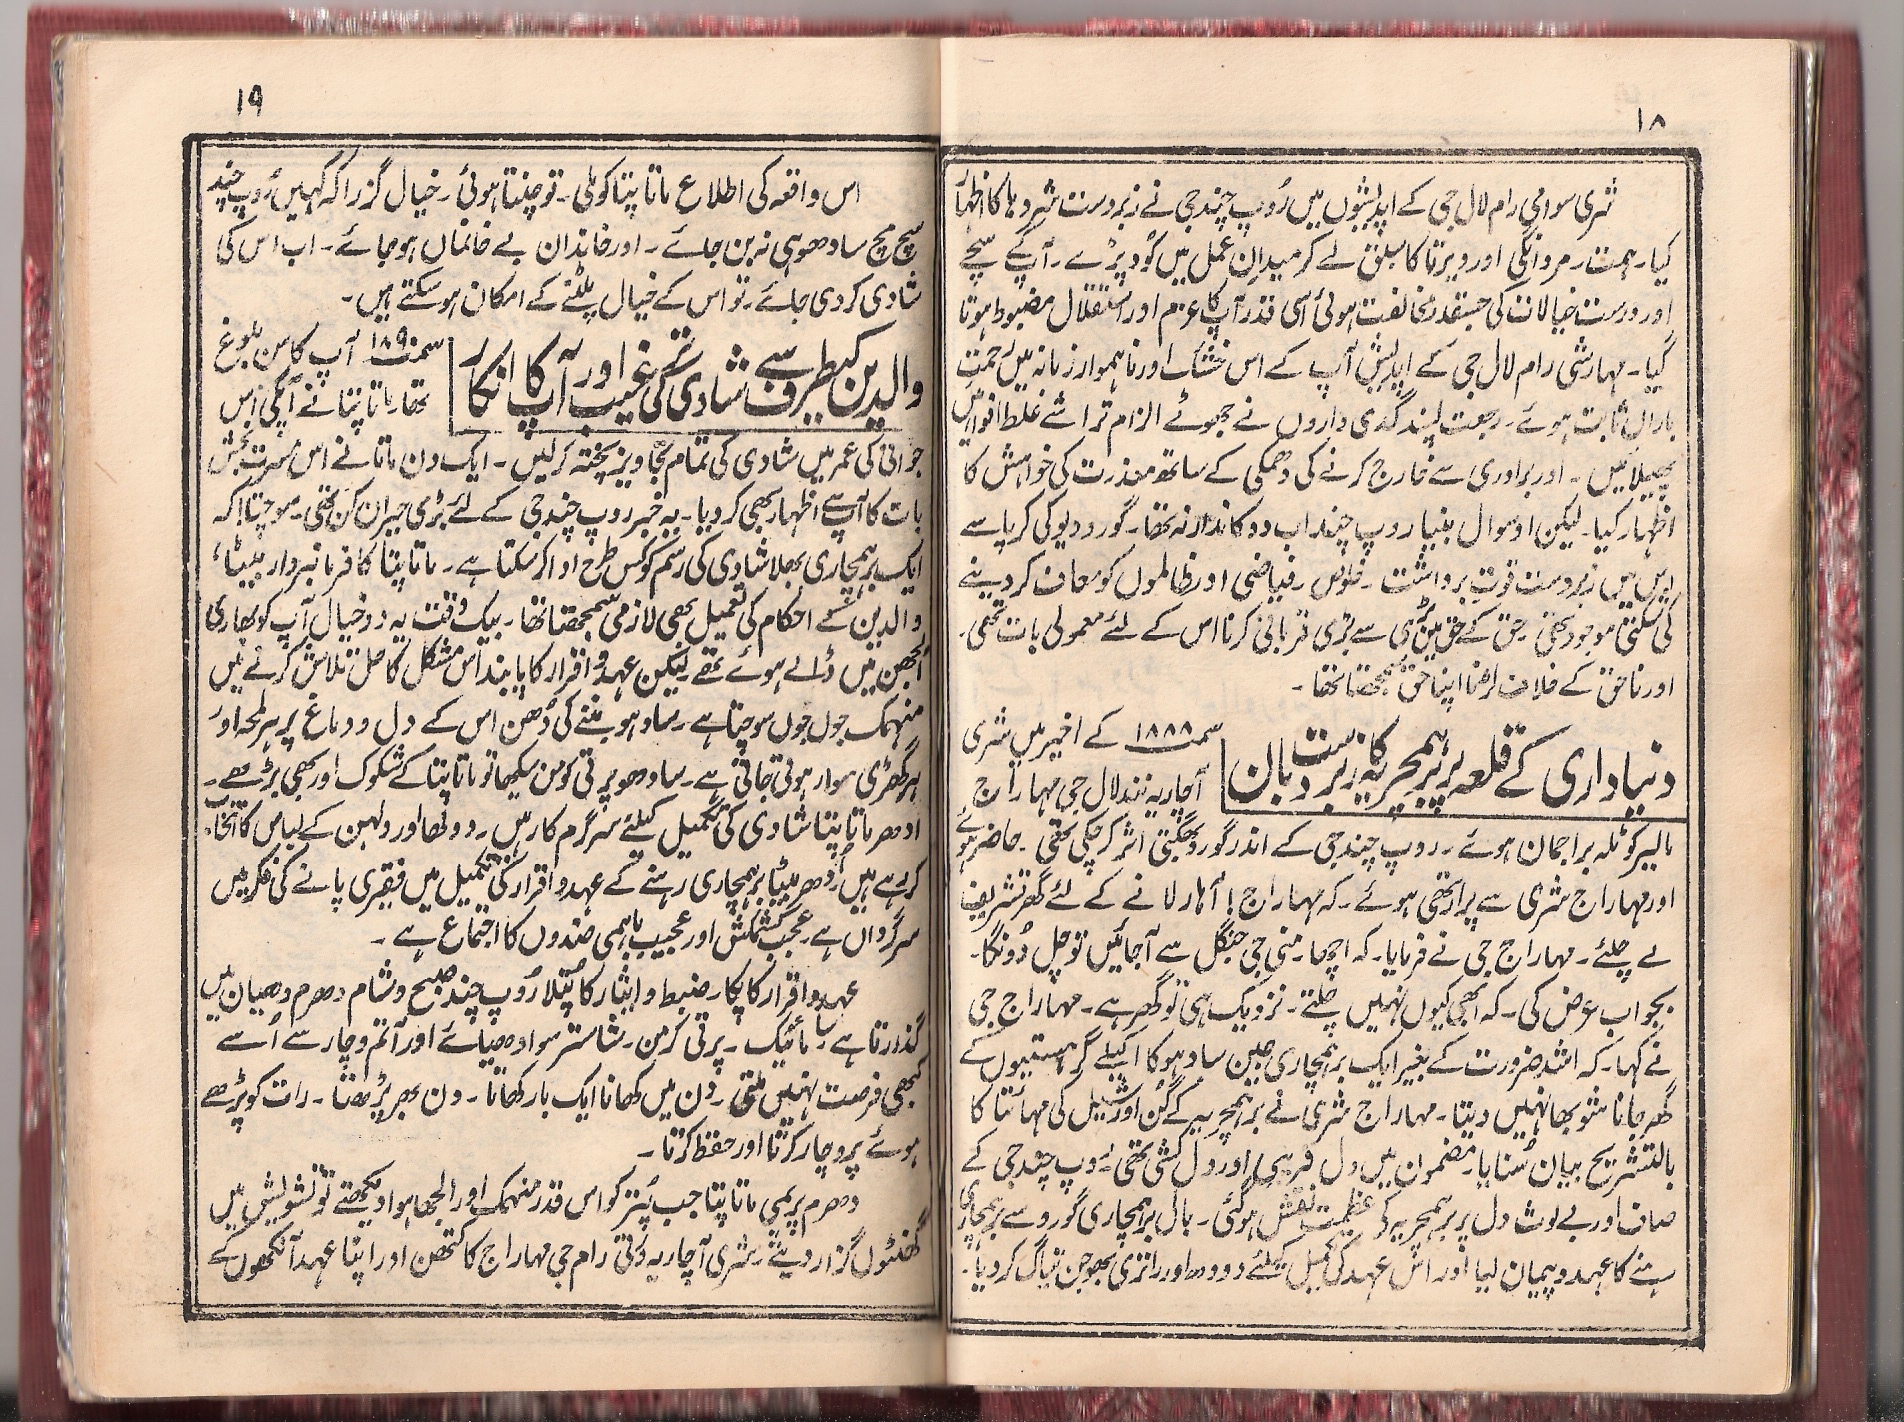 ۱۸
شری سوامی رام لال جی کے اپدیشوں میں رُوپ چند جی نے زبردست شردہا کا اظہار
کیا۔ ہمت۔ مردانگی اور ویرتا کا سبق لے کر میدانِ عمل میں کُود پڑے۔ آپکے سچے
اور درست خیالات کی جسقدر مخالفت ہوئی اُسی قدر آپ کا عزم اور استقلال مضبوط ہوتا
گیا۔ مہارشی رام لال جی کے اپدیش آپ کے اس خشک اور ناہموار زمانہ میں رحمتِ
باراں ثابت ہوئے۔ رجعت پسند گدی داروں نے جھوٹے الزام تراشے غلط افواہیں
پھیلائیں۔ اور برادری سے خارج کرنے کی دھمکی کے ساتھ معذرت کی خواہش کا
اظہار کیا۔ لیکن اوسوال بنیا روپ چند اب دوکاندار نہ تھا۔ گورودیو کی کرپا سے
اس میں زبردست قوتِ برداشت۔ خلوص۔ فیاضی اور ظالموں کو معاف کر دینے
کی شکتی موجود تھی۔ حق کے حق میں بڑی سے بڑی قربانی کرنا اس کے لئے معمولی بات تھی۔
اور ناحق کے خلاف لڑنا اپنا حق سمجھتا تھا۔
دنیاداری کے قلعہ پر برہمچریہ کا زبردست بان
سمت ۱۸۸۸ کے اخیر میں شری
آچاریہ نند لال جی مہاراج
مالیرکوٹلہ براجمان ہوئے۔ روپ چند جی کے اندر گورو بھگتی اثر کر چکی تھی۔ حاضر ہوئے
اور مہاراج شری سے پرارتھی ہوئے۔ کہ مہاراج! آہار لانے کے لئے گھر تشریف
لے چلئے۔ مہاراج جی نے فرمایا۔ کہ اچھا۔ منی جی جنگل سے آجائیں تو چل دُونگا۔
بجواب عرض کی۔ کہ ابھی کیوں نہیں چلتے۔ نزدیک ہی تو گھر ہے۔ مہاراج جی
نے کہا۔ کہ اشد ضرورت کے بغیر ایک برہمچاری جین سادہو کا اکیلے گرہستیوں کے
گھر جانا شوبھا نہیں دیتا۔ مہاراج شری نے برہمچریہ کے گُن اور شیل کی مہانتا کا
بالتشریح بیان سُنایا۔ مضمون میں دل فریبی اور دل کشی تھی۔ رُوپ چند جی کے
صاف اور بے لوث دل پر برہمچریہ کی عظمت نقش ہو گئی۔ بال برہمچاری گورو سے برہمچاری
رہنے کا عہد و پیمان لیا اور اس عہد کی تکمیل کیلئے دودھ اور راتری بھوجن تیاگ کر دیا۔
۱۹
اس واقعہ کی اطلاع ماتا پتا کو ملی۔ تو چنتا ہوئی۔ خیال گزرا کہ کہیں رُوپ چند
سچ مچ سادھو ہی نہ بن جائے۔ اور خاندان بے خانماں ہو جائے۔ اب اس کی
شادی کر دی جائے۔ تو اس کے خیال پلٹنے کے امکان ہو سکتے ہیں۔
والدین کیطرف سے شادی کی ترغیب اور آپ کا انکار
سمت ۱۸۹۰ آپ کا سن بلوغ
تھا۔ ماتا پتا نے آپکی اس
جوانی کی عمر میں شادی کی تمام تجاویز پختہ کر لیں۔ ایک دن ماتا نے اس مسرت بخش
بات کا آپ سے اظہار بھی کر دیا۔ یہ خبر روپ چند جی کے لئے بڑی حیران کن تھی۔ سوچتا! کہ
ایک برہمچاری بھلا شادی کی رسم کو کس طرح ادا کر سکتا ہے۔ ماتا پتا کا فرمانبردار بیٹا،
والدین کے احکام کی تعمیل بھی لازمی سمجھتا تھا۔ بیک وقت یہ دو خیال آپ کو بھاری
اُلجھن میں ڈالے ہوئے تھے لیکن عہد و اقرار کا پابند اس مشکل کا حل تلاش کرنے میں
منہمک جوں جوں سوچتا ہے۔ سادہو بننے کی دُھن اس کے دل و دماغ پر ہر لمحہ اور
ہر گھڑی سوار ہوتی جاتی ہے۔ سادھو پرتی کومن سیکھا تو ماتا پتا کے شکوک اور بھی بڑھے۔
ادھر ماتا پتا شادی کی تکمیل کیلئے سرگرم کار ہیں۔ دولھا اور دلہن کے لباس کا انتخاب
کر رہے ہیں۔ اُدھر بیٹا برہمچاری رہنے کے عہد و اقرار کی تکمیل میں فقیری پانے کی فکر میں
سرگرداں ہے۔ عجب کشمکش اور عجیب باہمی ضدوں کا اجتماع ہے۔
عہد و اقرار کا پکا۔ ضبط و ایثار کا پُتلا رُوپ چند صبح و شام دھرم دھیان میں
گذارتا ہے۔ سامائیک۔ پرتی کرمن۔ شاستر سوادھیائے اور آتم وچار سے اُسے
کبھی فرصت نہیں ملتی۔ دن میں کھانا ایک بار کھاتا۔ دن بھر پڑھتا۔ رات کو پڑھے
ہوئے پر وچار کرتا اور حفظ کرتا۔
دھرم پریمی ماتا پتا جب پُتر کو اس قدر منہمک اور الجھا ہوا دیکھتے تو تشویش میں
گھنٹوں گزار دیتے۔ شری آچاریہ رتی رام جی مہاراج کا کتھن اور اپنا عہد آنکھوں کے